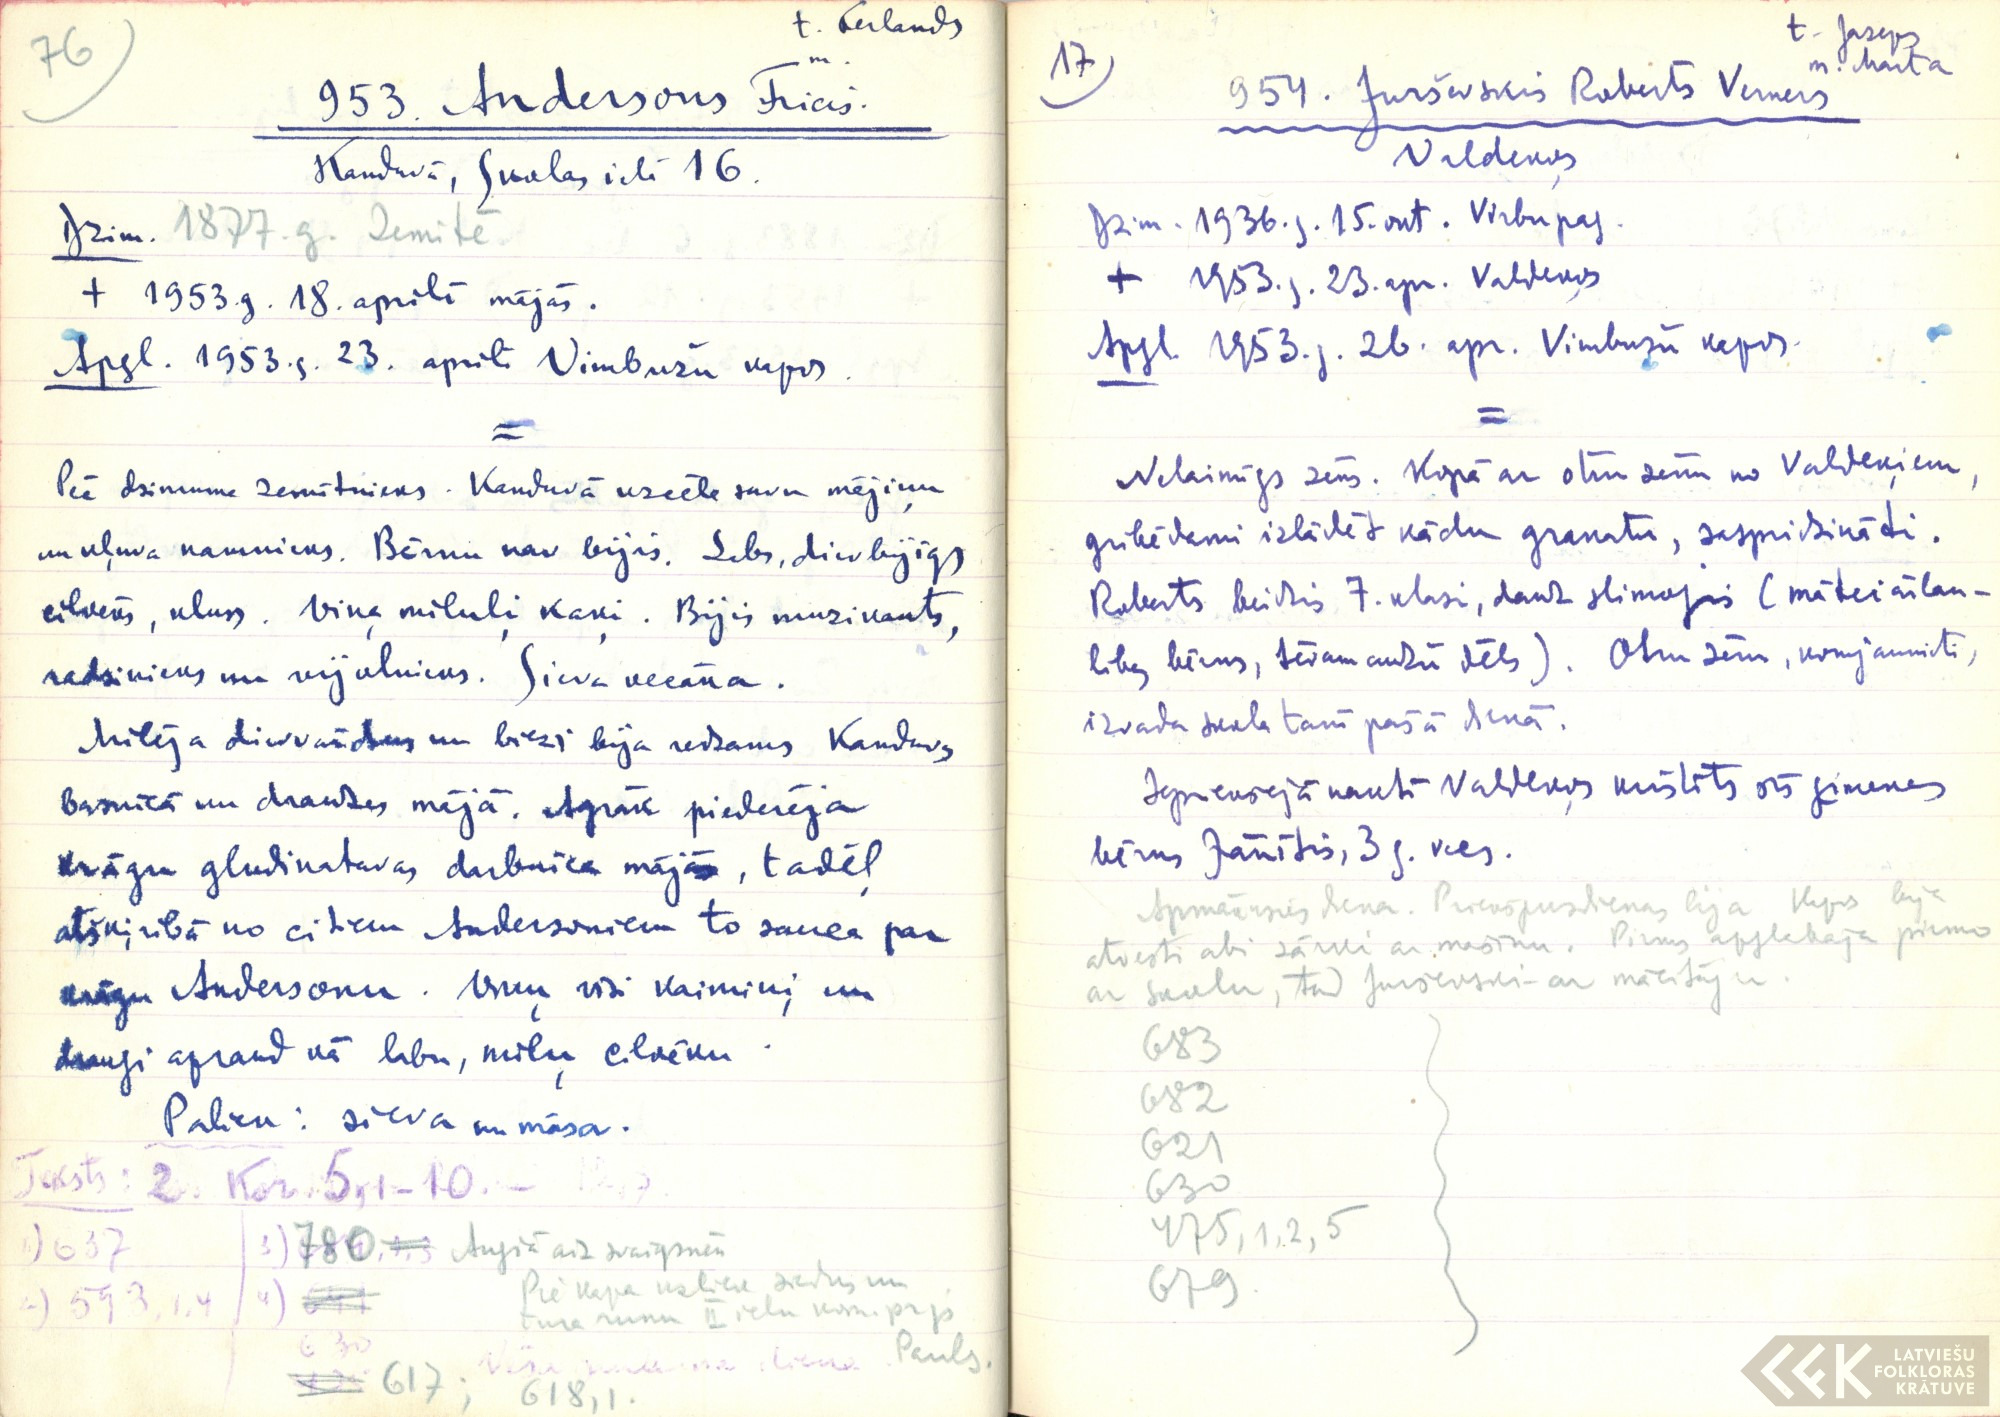 76)
t. Ferlands
m.
953. Andersons Fricis.
Kandavā, Skolas ielā 16.
Dzim. 1877.g. Zemītē
+ 1953.g. 18. aprīlī mājās.
Apgl. 1953.g. 23. aprīlī Vimbužu kapos.
=
Pēc dzimuma zemītnieks. Kandavā uzcēla savu mājiņu
un kļuva namnieks. Bērnu nav bijis. Labs, dievbijīgs
cilvēks, kluss. Viņa mīluļi kaķi. Bijis muzikants,
radzinieks un vijolnieks. Sieva vecāka.
Mīlēja dievvārdus un bieži bija redzams Kandavas
baznīcā un draudzes mājā. Agrāk piederēja
krāgu gludinatavas darbnīca mājās, tadēļ
atšķirībā no citiem Andersoniem to sauca par
krāgu Andersonu. Viņu visi kaimiņi un
draugi apraud kā labu, mīļu cilvēku.
Paliek: sieva un māsa.
Teksts: 2. Kor. 5,1-10. -
1) 637
2) 593,1,4
3) 780 Augšā aiz zvaigznēm
4)
Pie kapa uzliek ziedus un
tura runu II ielu kom. prjs
Pauls.
630
617; diena
618,1.
17)
t. Jazeps
m. Marta
954. Jurševskis Roberts Verners
Valdeķos
Dzim. 1936.g. 15. okt. Virbu pag.
+ 1953.g. 23. apr. Valdeķos
Apgl. 1953.g. 26. apr. Vimbužu kapos.
=
Nelaimīgs zēns. Kopā ar otru zēnu no Valdeķiem,
gribēdami izlādēt kādu granatu, saspridzināti.
Roberts beidzis 7. klasi, daudz slimojis (mātei ārlau-
lības bērns, tēvam audžu dēls). Otru zēnu, komjaunieti,
izvada skola tanī pašā dienā.
Iepriekšējā naktī Valdeķos kristīts šīs ģimenes
bērns Jānītis, 3 g. vecs.
Apmākusies diena. Priekšpusdienas bija Kapos bija
atvesti abi zārki ar mašīnu. Pirms apglabāja pirmo
ar skolu, tad Jurševski - ar mācītāju.
683
682
621
630
475,1,2,5
679.
LATVIEŠU
FOLKLORAS
KRĀTUVE